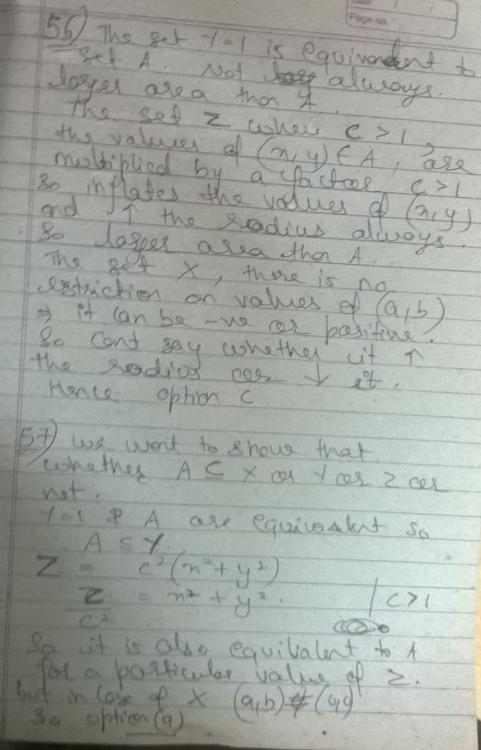 Page no
56) The set Y=1 is equivalent to
set A. Not always.
larger area than A.
The set Z when c > 1,
the values of (x,y) ∈ A, are
multiplied by a factor c > 1
so inflates the values of (x,y)
and ↑ the radius always.
So larger area than A.
The set X, there is no
restriction on values of (a,b)
⇒ it can be -ve or positive.
So cont say whether it ↑
the radius or ↓ it.
Hence option C
57) we want to show that
whether A ⊆ X or Y or Z or
not.
Y=1 & A are equivalent so
A ⊆ Y.
Z = c²(x²+y²)
Z/c² = x² + y². | c>1
So it is also equivalent to A
for a particular value of Z.
but in case of X (a,b) ≠
So option (a)